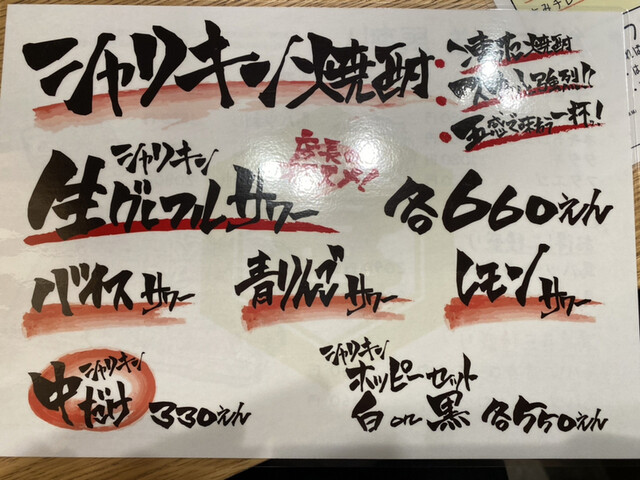 シャリキン焼酎
・凍結焼酎
・強烈!?
・五感で味わう一杯!
店長の
シャリキン
生グレフルサワー 各660えん
バイスサワー 青リンゴサワー レモンサワー
シャリキン
中だけ 330えん
シャリキン
ホッピーセット
白or黒 各550えん